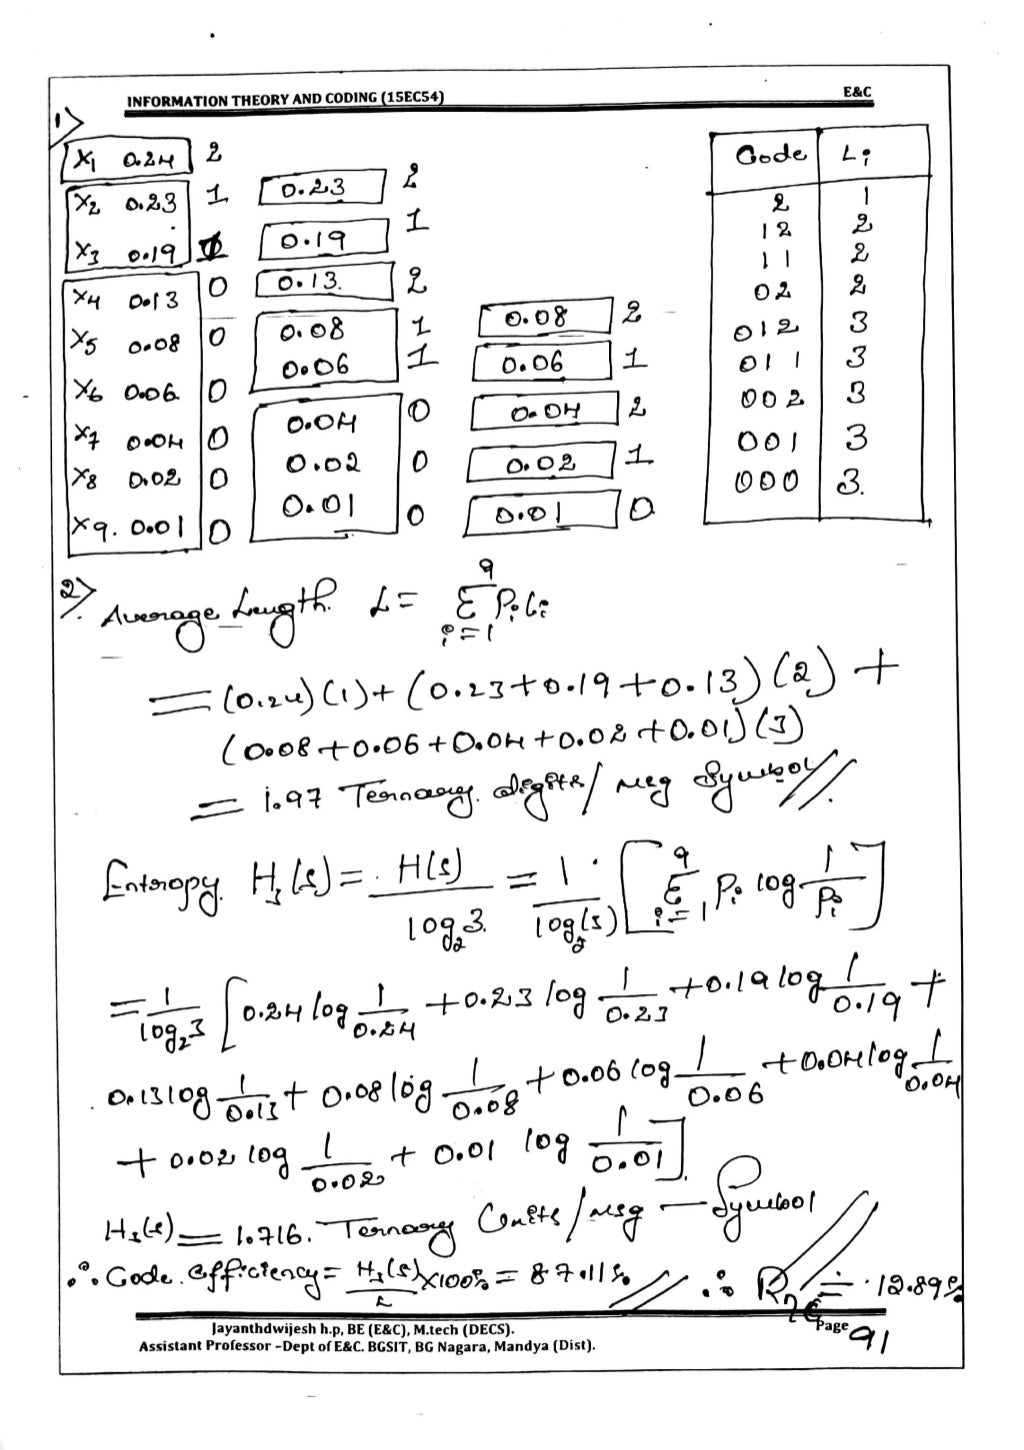 INFORMATION THEORY AND CODING (15EC54) E&C
1>
x1 0.24 2
x2 0.23 1 0.23 2
x3 0.19 1 0.19 1
x4 0.13 0 0.13. 2
x5 0.08 0 0.08 1 0.08 2
x6 0.06. 0 0.06 1 0.06 1
x7 0.04 0 0.04 0 0.04 2
x8 0.02 0 0.02 0 0.02 1
x9. 0.01 0 0.01 0 0.01 0
Code Li
2 1
12 2
11 2
02 2
012 3
011 3
002 3
001 3
000 3.
2> Average Length. L = 9 Σ i=1 Pi Li
= (0.24)(1) + (0.23+0.19+0.13)(2) +
(0.08+0.06+0.04+0.02+0.01)(3)
= 1.97 Ternary. digits/ msg Symbol//.
Entropy. H3(s) = H(s) / log2 3. = 1 / log2(3) [ 9 Σ i=1 Pi log 1/Pi ]
= 1/log2 3 [ 0.24 log 1/0.24 + 0.23 log 1/0.23 + 0.19 log 1/0.19 +
0.13 log 1/0.13 + 0.08 log 1/0.08 + 0.06 log 1/0.06 + 0.04 log 1/0.04
+ 0.02 log 1/0.02 + 0.01 log 1/0.01 ].
H3(s) = 1.716. Ternary Units/msg — Symbol //
∴ Code. efficiency = H3(s)/L ×100% = 87.11%. // ∴ Rηc = 12.89%
Jayanthdwijesh h.p, BE (E&C), M.tech (DECS). Page 91
Assistant Professor –Dept of E&C. BGSIT, BG Nagara, Mandya (Dist).